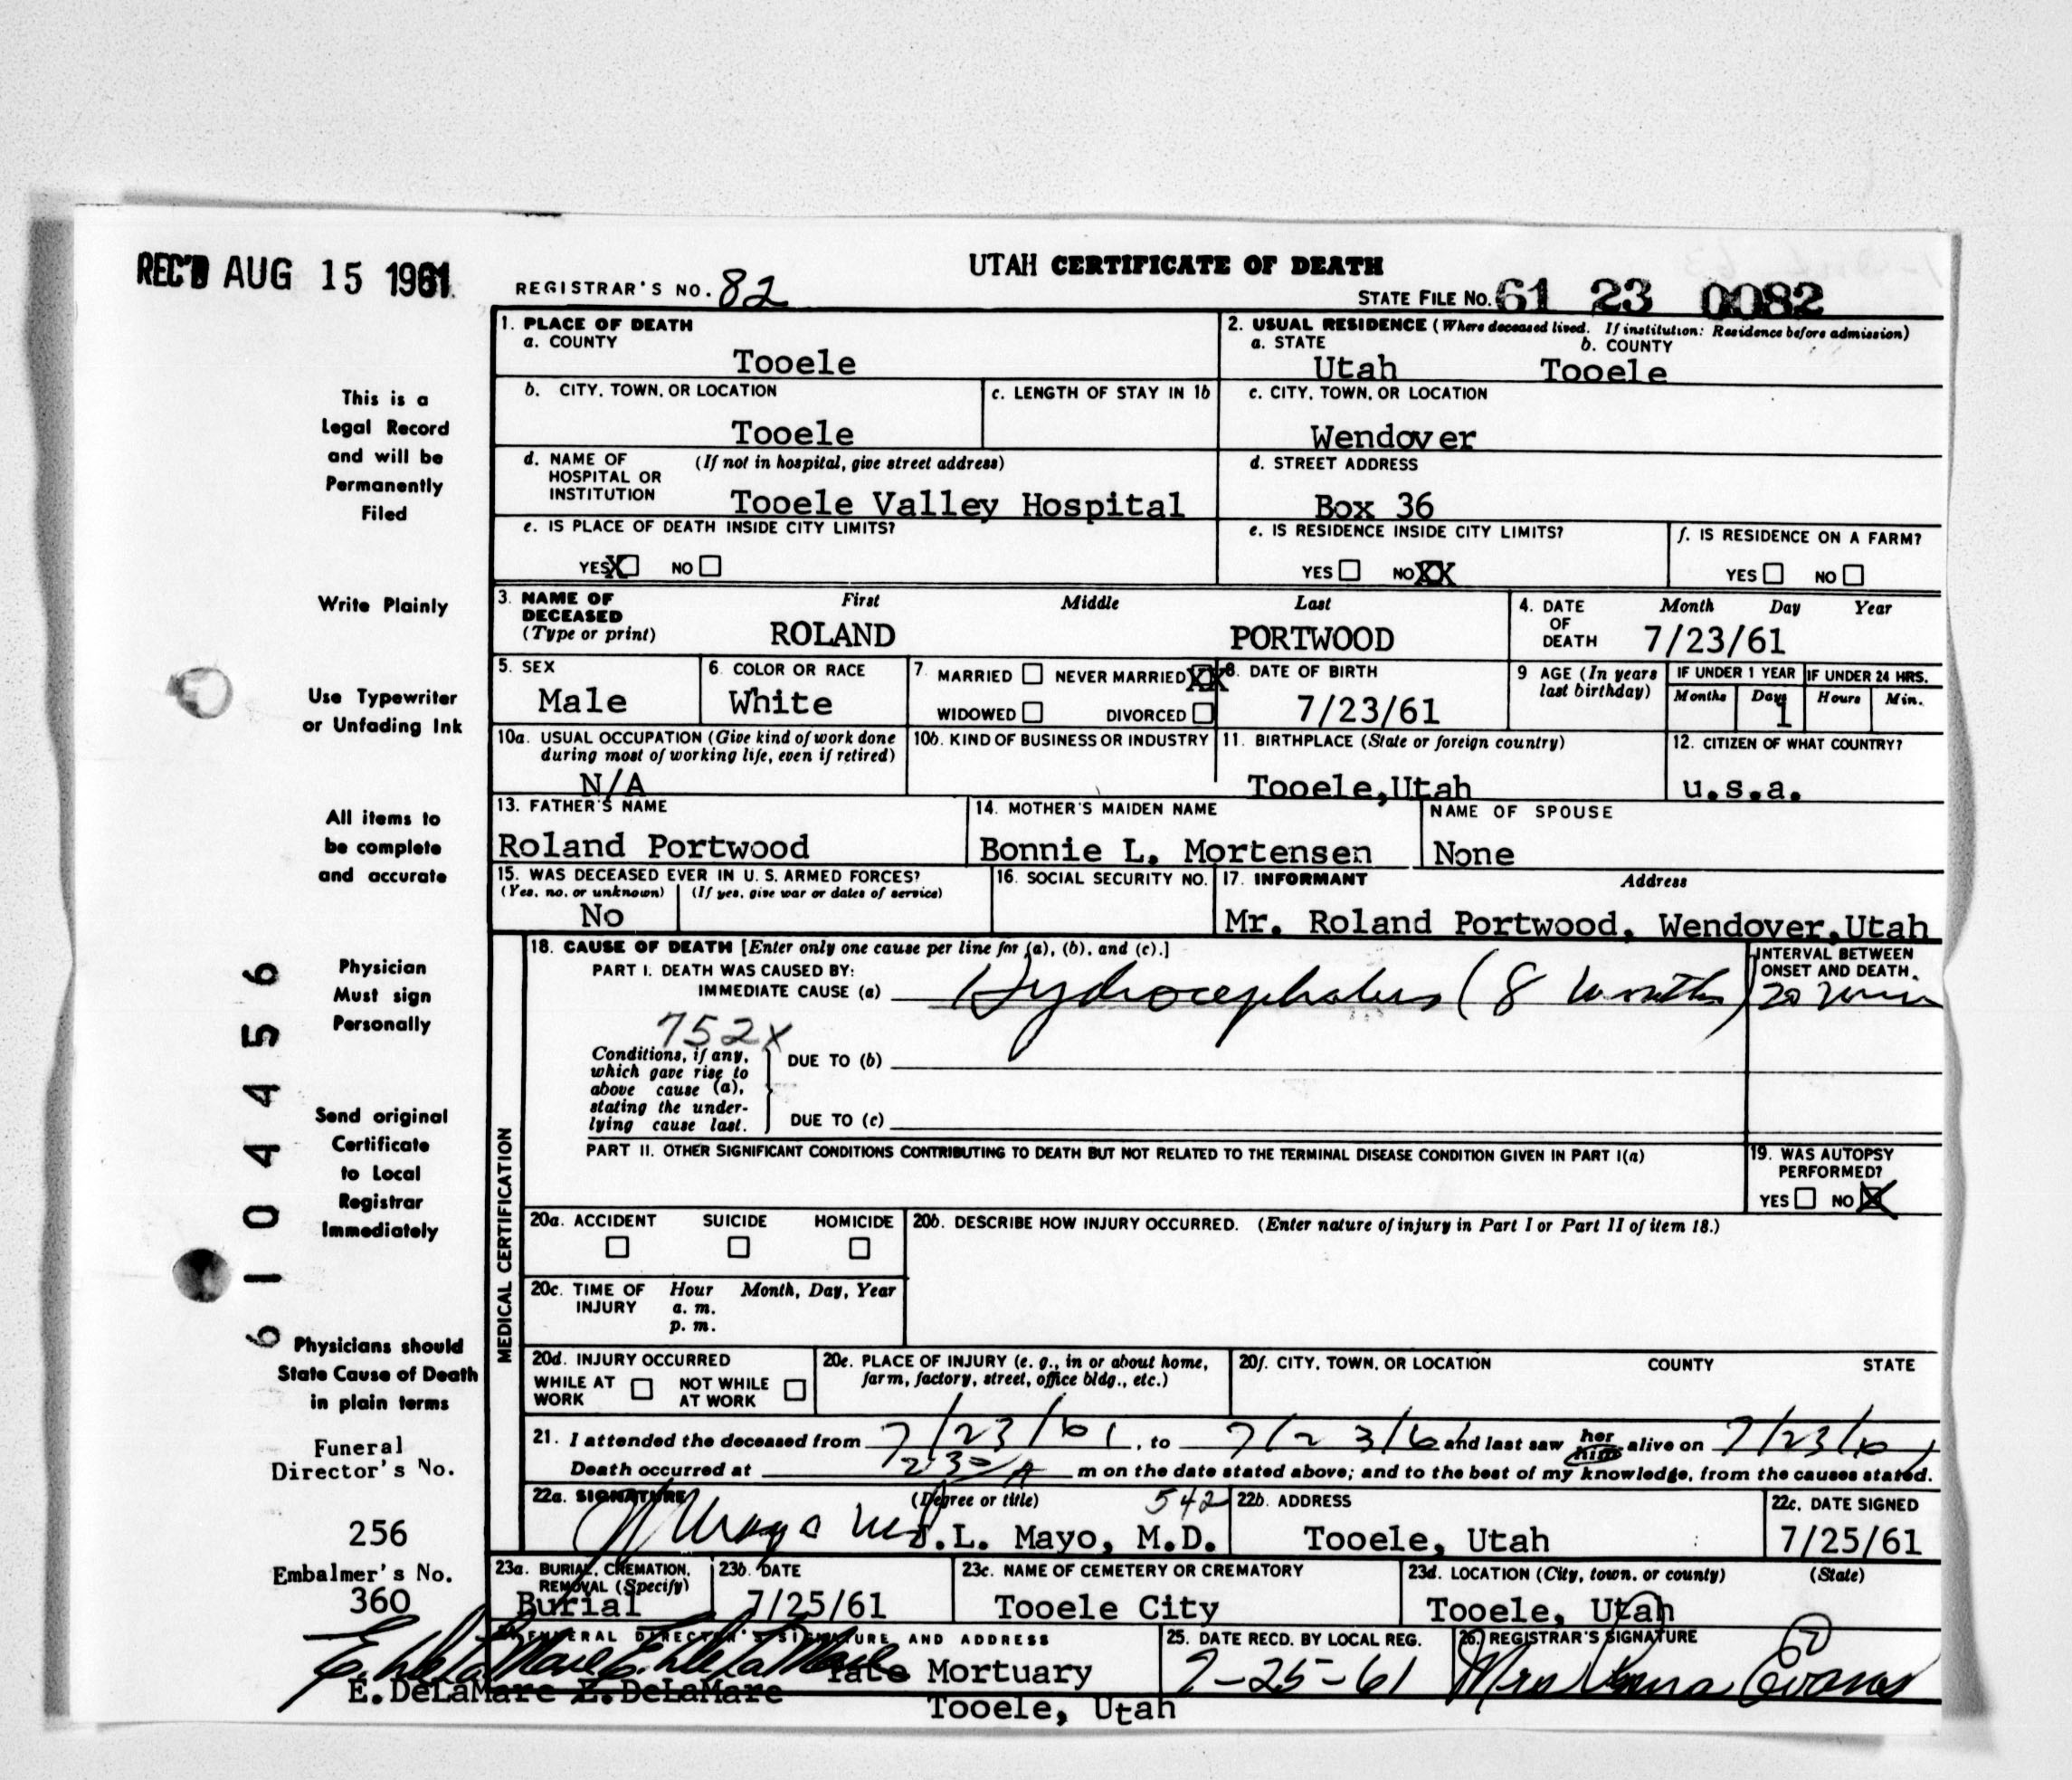 REC'D AUG 15 1961
UTAH CERTIFICATE OF DEATH
REGISTRAR'S NO. 82
STATE FILE NO. 61 23 0082
This is a
Legal Record
and will be
Permanently
Filed
Write Plainly
Use Typewriter
or Unfading Ink
All items to
be complete
and accurate
Physician
Must sign
Personally
Send original
Certificate
to Local
Registrar
Immediately
Physicians should
State Cause of Death
in plain terms
Funeral
Director's No.
256
Embalmer's No.
360
6104456
1. PLACE OF DEATH
a. COUNTY
Tooele
2. USUAL RESIDENCE (Where deceased lived. If institution: Residence before admission)
a. STATE b. COUNTY
Utah Tooele
b. CITY, TOWN, OR LOCATION
Tooele
c. LENGTH OF STAY IN 1b
c. CITY, TOWN, OR LOCATION
Wendover
d. NAME OF (If not in hospital, give street address)
HOSPITAL OR
INSTITUTION
Tooele Valley Hospital
d. STREET ADDRESS
Box 36
e. IS PLACE OF DEATH INSIDE CITY LIMITS?
YES X NO
e. IS RESIDENCE INSIDE CITY LIMITS?
YES NO XX
f. IS RESIDENCE ON A FARM?
YES NO
3. NAME OF First Middle Last
DECEASED
(Type or print)
ROLAND PORTWOOD
4. DATE Month Day Year
OF
DEATH 7/23/61
5. SEX
Male
6. COLOR OR RACE
White
7. MARRIED NEVER MARRIED XX
WIDOWED DIVORCED
8. DATE OF BIRTH
7/23/61
9 AGE (In years
last birthday)
IF UNDER 1 YEAR IF UNDER 24 HRS.
Months Days Hours Min.
1
10a. USUAL OCCUPATION (Give kind of work done
during most of working life, even if retired)
N/A
10b. KIND OF BUSINESS OR INDUSTRY
11. BIRTHPLACE (State or foreign country)
Tooele,Utah
12. CITIZEN OF WHAT COUNTRY?
u.s.a.
13. FATHER'S NAME
Roland Portwood
14. MOTHER'S MAIDEN NAME
Bonnie L. Mortensen
NAME OF SPOUSE
None
15. WAS DECEASED EVER IN U. S. ARMED FORCES?
(Yes, no, or unknown) (If yes, give war or dates of service)
No
16. SOCIAL SECURITY NO.
17. INFORMANT Address
Mr. Roland Portwood, Wendover,Utah
MEDICAL CERTIFICATION
18. CAUSE OF DEATH [Enter only one cause per line for (a), (b), and (c).]
PART I. DEATH WAS CAUSED BY:
IMMEDIATE CAUSE (a) Hydrocephalus (8 months)
INTERVAL BETWEEN
ONSET AND DEATH.
20 min
752x
Conditions, if any,
which gave rise to
above cause (a),
stating the under-
lying cause last.
DUE TO (b)
DUE TO (c)
PART II. OTHER SIGNIFICANT CONDITIONS CONTRIBUTING TO DEATH BUT NOT RELATED TO THE TERMINAL DISEASE CONDITION GIVEN IN PART I(a)
19. WAS AUTOPSY
PERFORMED?
YES NO X
20a. ACCIDENT SUICIDE HOMICIDE
20b. DESCRIBE HOW INJURY OCCURRED. (Enter nature of injury in Part I or Part II of item 18.)
20c. TIME OF Hour Month, Day, Year
INJURY a. m.
p. m.
20d. INJURY OCCURRED
WHILE AT NOT WHILE
WORK AT WORK
20e. PLACE OF INJURY (e. g., in or about home,
farm, factory, street, office bldg., etc.)
20f. CITY, TOWN, OR LOCATION COUNTY STATE
21. I attended the deceased from 7/23/61, to 7/23/61 and last saw her him alive on 7/23/61
Death occurred at 1230 A m on the date stated above; and to the best of my knowledge, from the causes stated.
22a. SIGNATURE (Degree or title) 542
J.L. Mayo, M.D.
22b. ADDRESS
Tooele, Utah
22c. DATE SIGNED
7/25/61
23a. BURIAL, CREMATION,
REMOVAL (Specify)
Burial
23b. DATE
7/25/61
23c. NAME OF CEMETERY OR CREMATORY
Tooele City
23d. LOCATION (City, town, or county) (State)
Tooele, Utah
FUNERAL DIRECTOR'S SIGNATURE AND ADDRESS
Tate Mortuary
E. DeLaMare E. DeLaMare
Tooele, Utah
25. DATE RECD. BY LOCAL REG.
7-25-61
26. REGISTRAR'S SIGNATURE
Evans